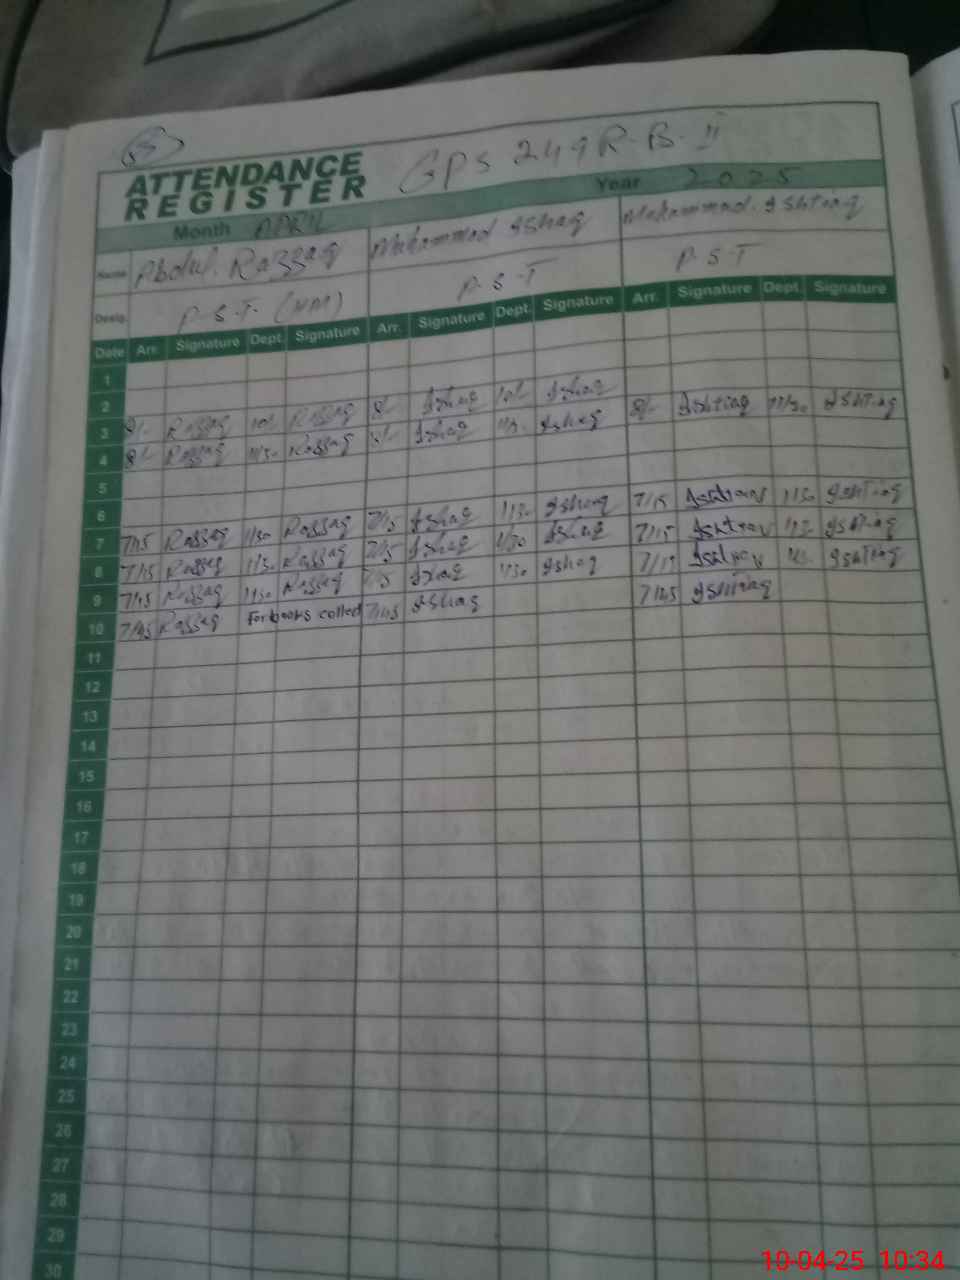 3
ATTENDANCE REGISTER GPS 249 R-B-II
Month APRIL Year 2025
Name Abdul. Razzaq Muhammad Ishaq Muhammad. Ishtiaq
Desig. P-S-T-(HM) P-S-T P-S-T
Date Arr. Signature Dept. Signature Arr. Signature Dept. Signature Arr. Signature Dept. Signature
1
2
3 8/- Razzaq 10/- Razzaq 8/- Ishaq 10/- Ishaq 8/- Ishtiaq 11/30 Ishtiaq
4 8/- Razzaq 11/30 Razzaq 8/- Ishaq Ishaq
5
6
7 7/15 Razzaq 1/30 Razzaq 7/15 Ishaq 1/30 Ishaq 7/15 1/30 Ishtiaq
8 7/15 Razzaq 1/30 Razzaq 7/15 Ishaq 1/30 Ishaq 7/15 1/30 Ishtiaq
9 7/45 Razzaq 1/30 Razzaq Ishaq 1/30 Ishaq 7/15 Ishtiaq
10 7/45 Razzaq For books collect 7/45 Ishaq 7/45 Ishtiaq
11
12
13
14
15
16
17
18
19
20
21
22
23
24
25
26
27
28
29
30
10-04-25 10:34